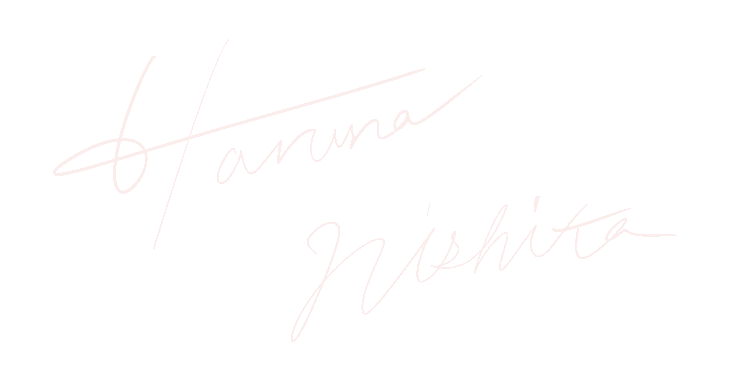 Haruna
Nishita